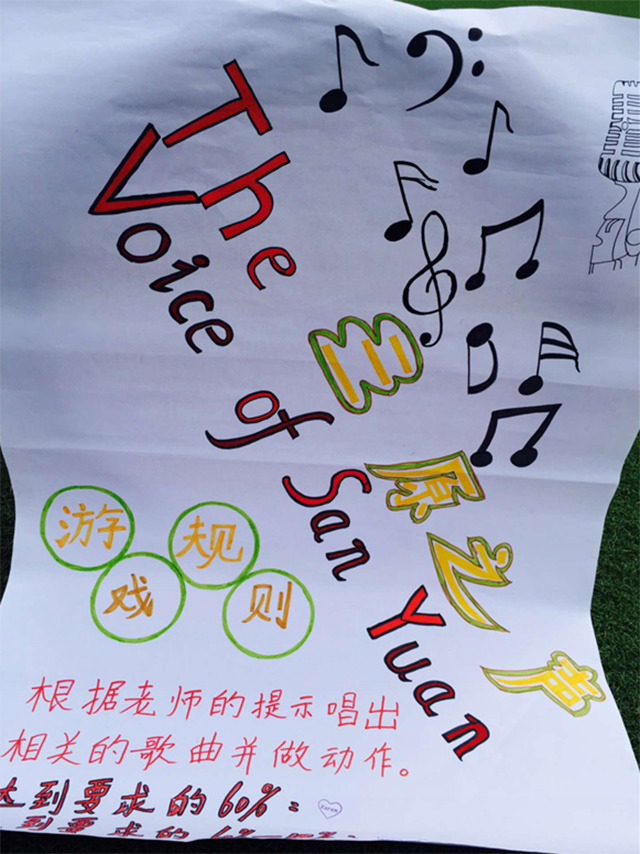 The
Voice
of
San
Yuan
三原之声
游戏规则
根据老师的提示唱出
相关的歌曲并做动作。
达到要求的60%：
到要求的